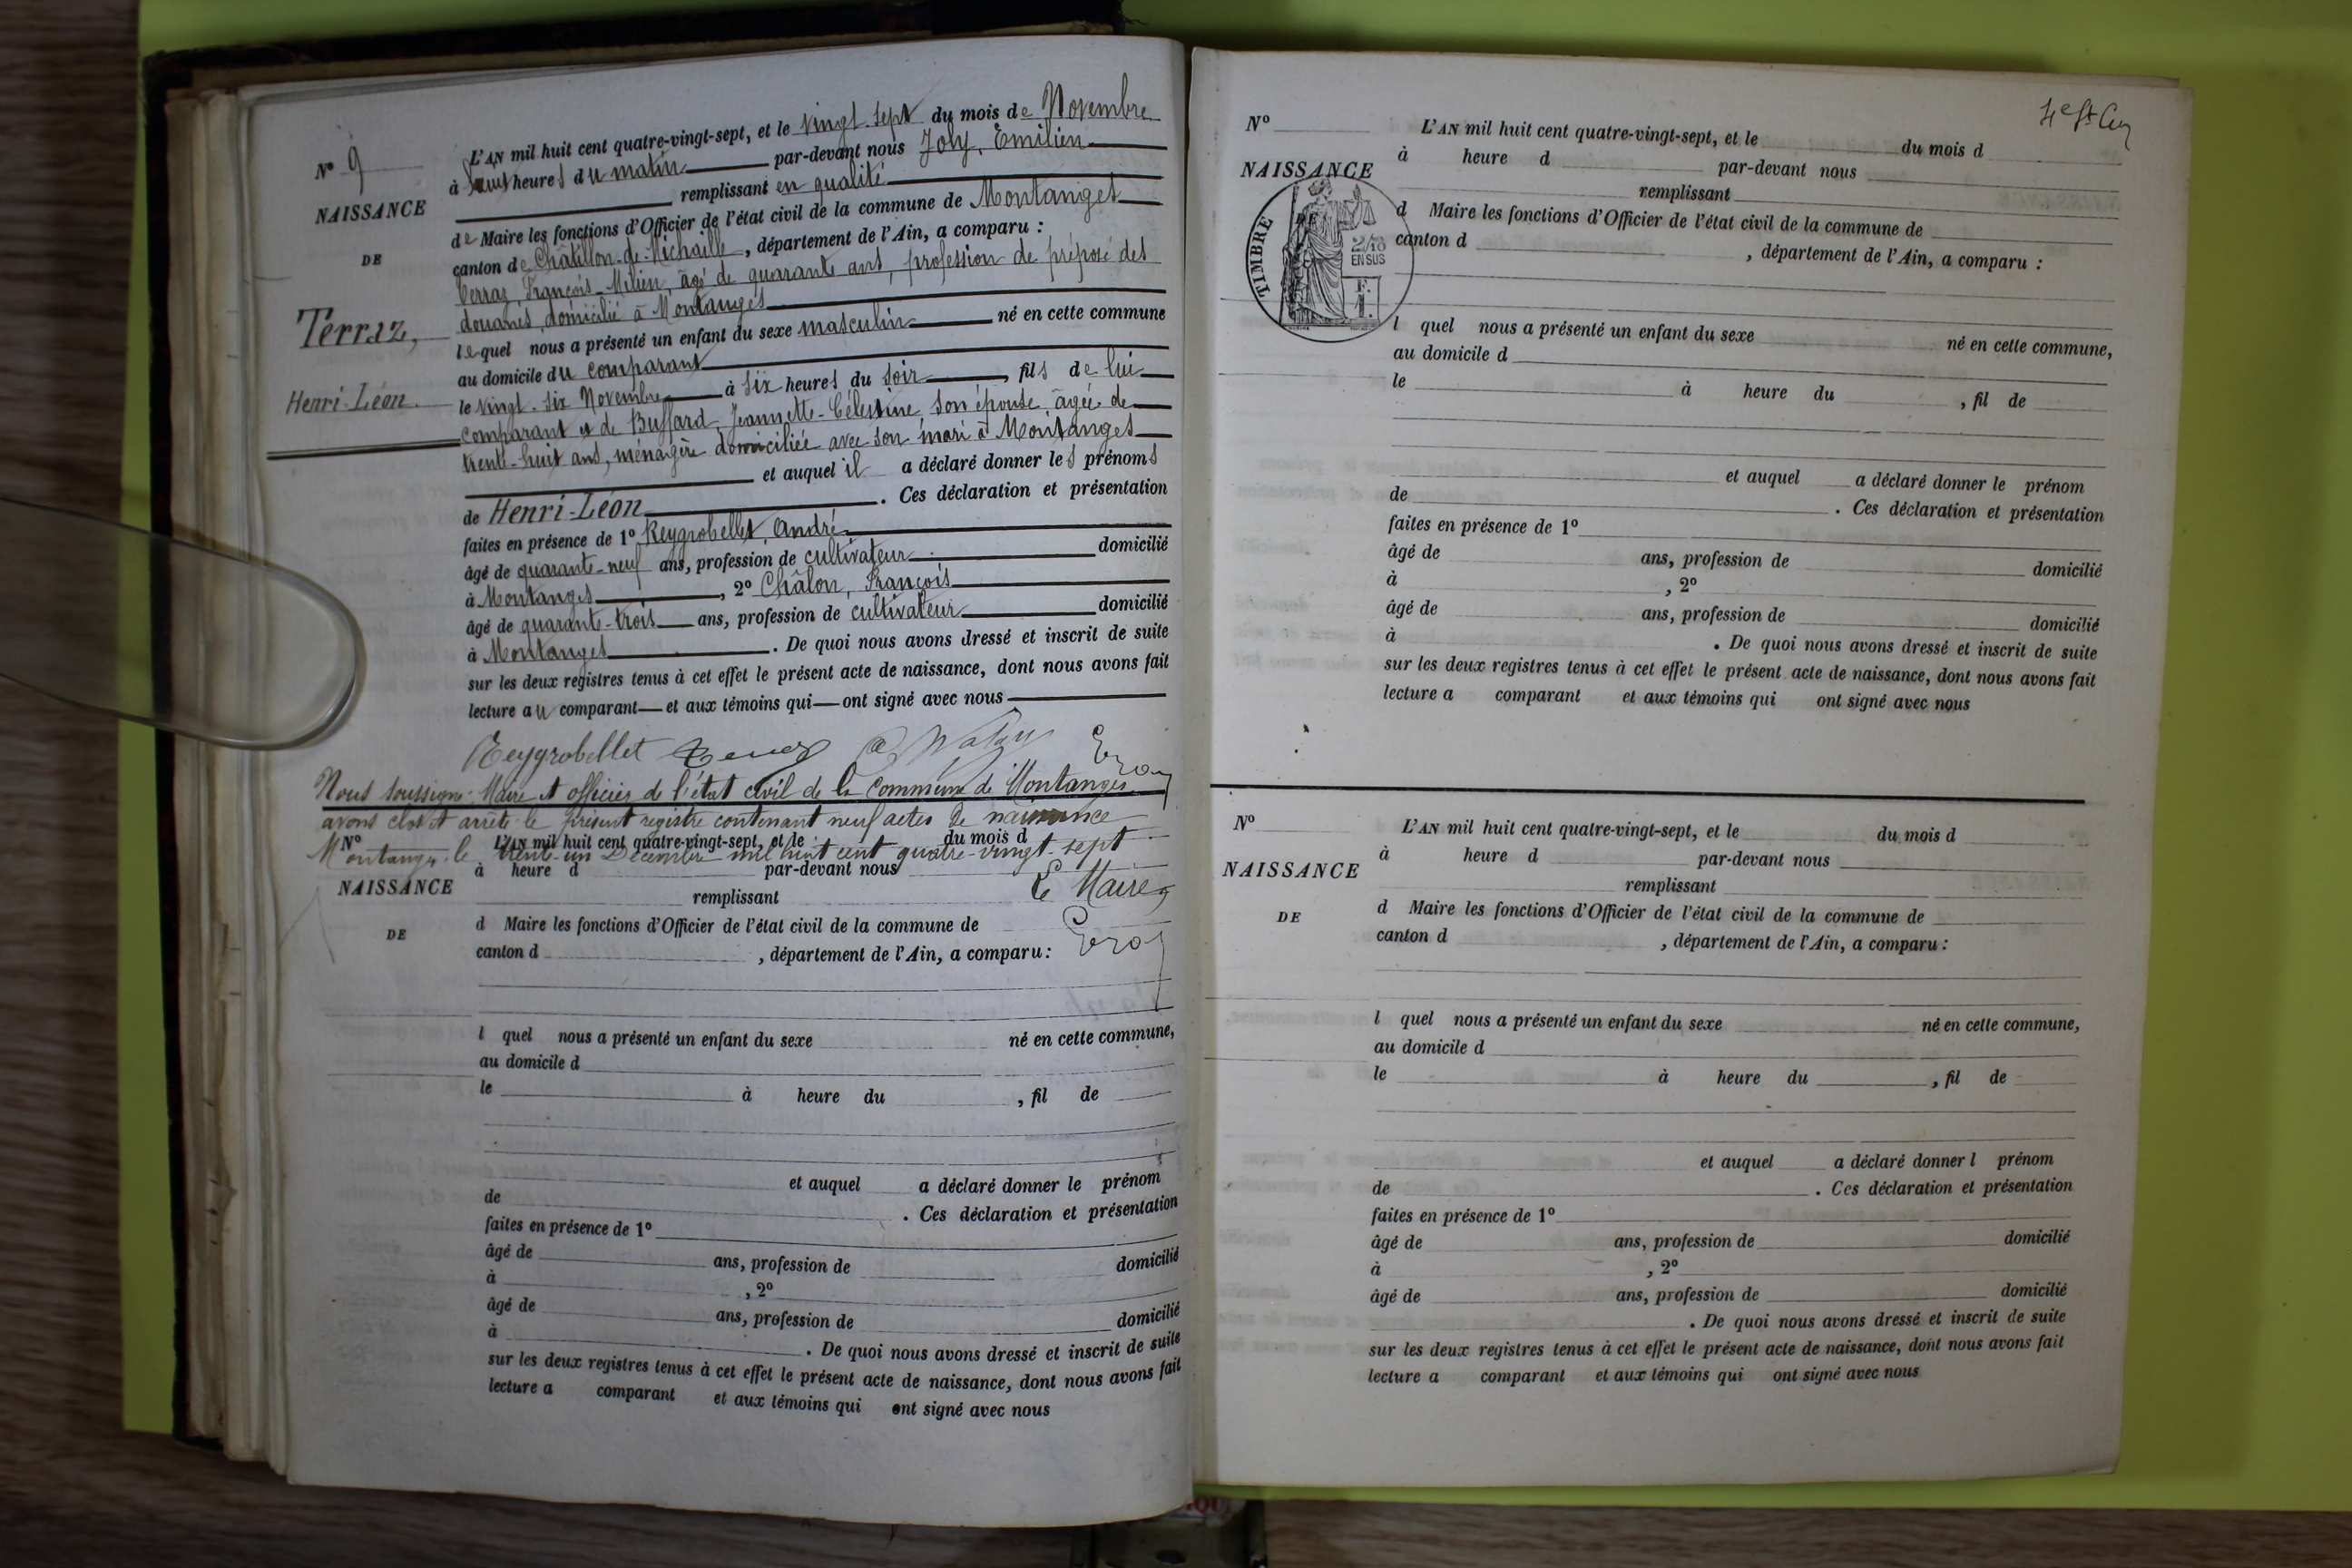 N° 9
NAISSANCE
DE
Terraz,
Henri-Léon
L'AN mil huit cent quatre-vingt-sept, et le vingt-sept du mois de Novembre
à heures du matin par-devant nous Joly, Emilien
remplissant en qualité
de Maire les fonctions d'Officier de l'état civil de la commune de Montanges
canton de Châtillon-de-Michaille, département de l'Ain, a comparu :
Terraz, François-Milien, âgé de quarante ans, profession de préposé des
douanes, domicilié à Montanges
lequel nous a présenté un enfant du sexe masculin né en cette commune
au domicile du comparant
le vingt-six Novembre à six heures du soir, fils de lui
comparant et de Buffard, Jeannette-Célestine, son épouse, âgée de
trente-huit ans, ménagère domiciliée avec son mari à Montanges
et auquel il a déclaré donner les prénoms
de Henri-Léon. Ces déclaration et présentation
faites en présence de 1° Reygrobellet, André
âgé de quarante-neuf ans, profession de cultivateur domicilié
à Montanges, 2° Châlon, François
âgé de quarante-trois ans, profession de cultivateur domicilié
à Montanges. De quoi nous avons dressé et inscrit de suite
sur les deux registres tenus à cet effet le présent acte de naissance, dont nous avons fait
lecture au comparant et aux témoins qui ont signé avec nous
Reygrobellet
Nous soussigné Maire et officier de l'état civil de la Commune de Montanges
avons clos et arrêté le présent registre contenant neuf actes de naissance
Montanges le trente-un Décembre mil huit cent quatre-vingt-sept
Le Maire
N°
NAISSANCE
DE
L'AN mil huit cent quatre-vingt-sept, et le du mois d
à heure d par-devant nous
remplissant
d Maire les fonctions d'Officier de l'état civil de la commune de
canton d , département de l'Ain, a comparu :
l quel nous a présenté un enfant du sexe né en cette commune,
au domicile d
le à heure du , fil de
et auquel a déclaré donner le prénom
de . Ces déclaration et présentation
faites en présence de 1°
âgé de ans, profession de domicilié
à , 2°
âgé de ans, profession de domicilié
à . De quoi nous avons dressé et inscrit de suite
sur les deux registres tenus à cet effet le présent acte de naissance, dont nous avons fait
lecture a comparant et aux témoins qui ont signé avec nous
N°
NAISSANCE
DE
TIMBRE
2/10
EN SUS
F.
1.
L'AN mil huit cent quatre-vingt-sept, et le du mois d
à heure d par-devant nous
remplissant
d Maire les fonctions d'Officier de l'état civil de la commune de
canton d , département de l'Ain, a comparu :
l quel nous a présenté un enfant du sexe né en cette commune,
au domicile d
le à heure du , fil de
et auquel a déclaré donner le prénom
de . Ces déclaration et présentation
faites en présence de 1°
âgé de ans, profession de domicilié
à , 2°
âgé de ans, profession de domicilié
à . De quoi nous avons dressé et inscrit de suite
sur les deux registres tenus à cet effet le présent acte de naissance, dont nous avons fait
lecture a comparant et aux témoins qui ont signé avec nous
N°
NAISSANCE
DE
L'AN mil huit cent quatre-vingt-sept, et le du mois d
à heure d par-devant nous
remplissant
d Maire les fonctions d'Officier de l'état civil de la commune de
canton d , département de l'Ain, a comparu :
l quel nous a présenté un enfant du sexe né en cette commune,
au domicile d
le à heure du , fil de
et auquel a déclaré donner l prénom
de . Ces déclaration et présentation
faites en présence de 1°
âgé de ans, profession de domicilié
à , 2°
âgé de ans, profession de domicilié
. De quoi nous avons dressé et inscrit de suite
sur les deux registres tenus à cet effet le présent acte de naissance, dont nous avons fait
lecture a comparant et aux témoins qui ont signé avec nous